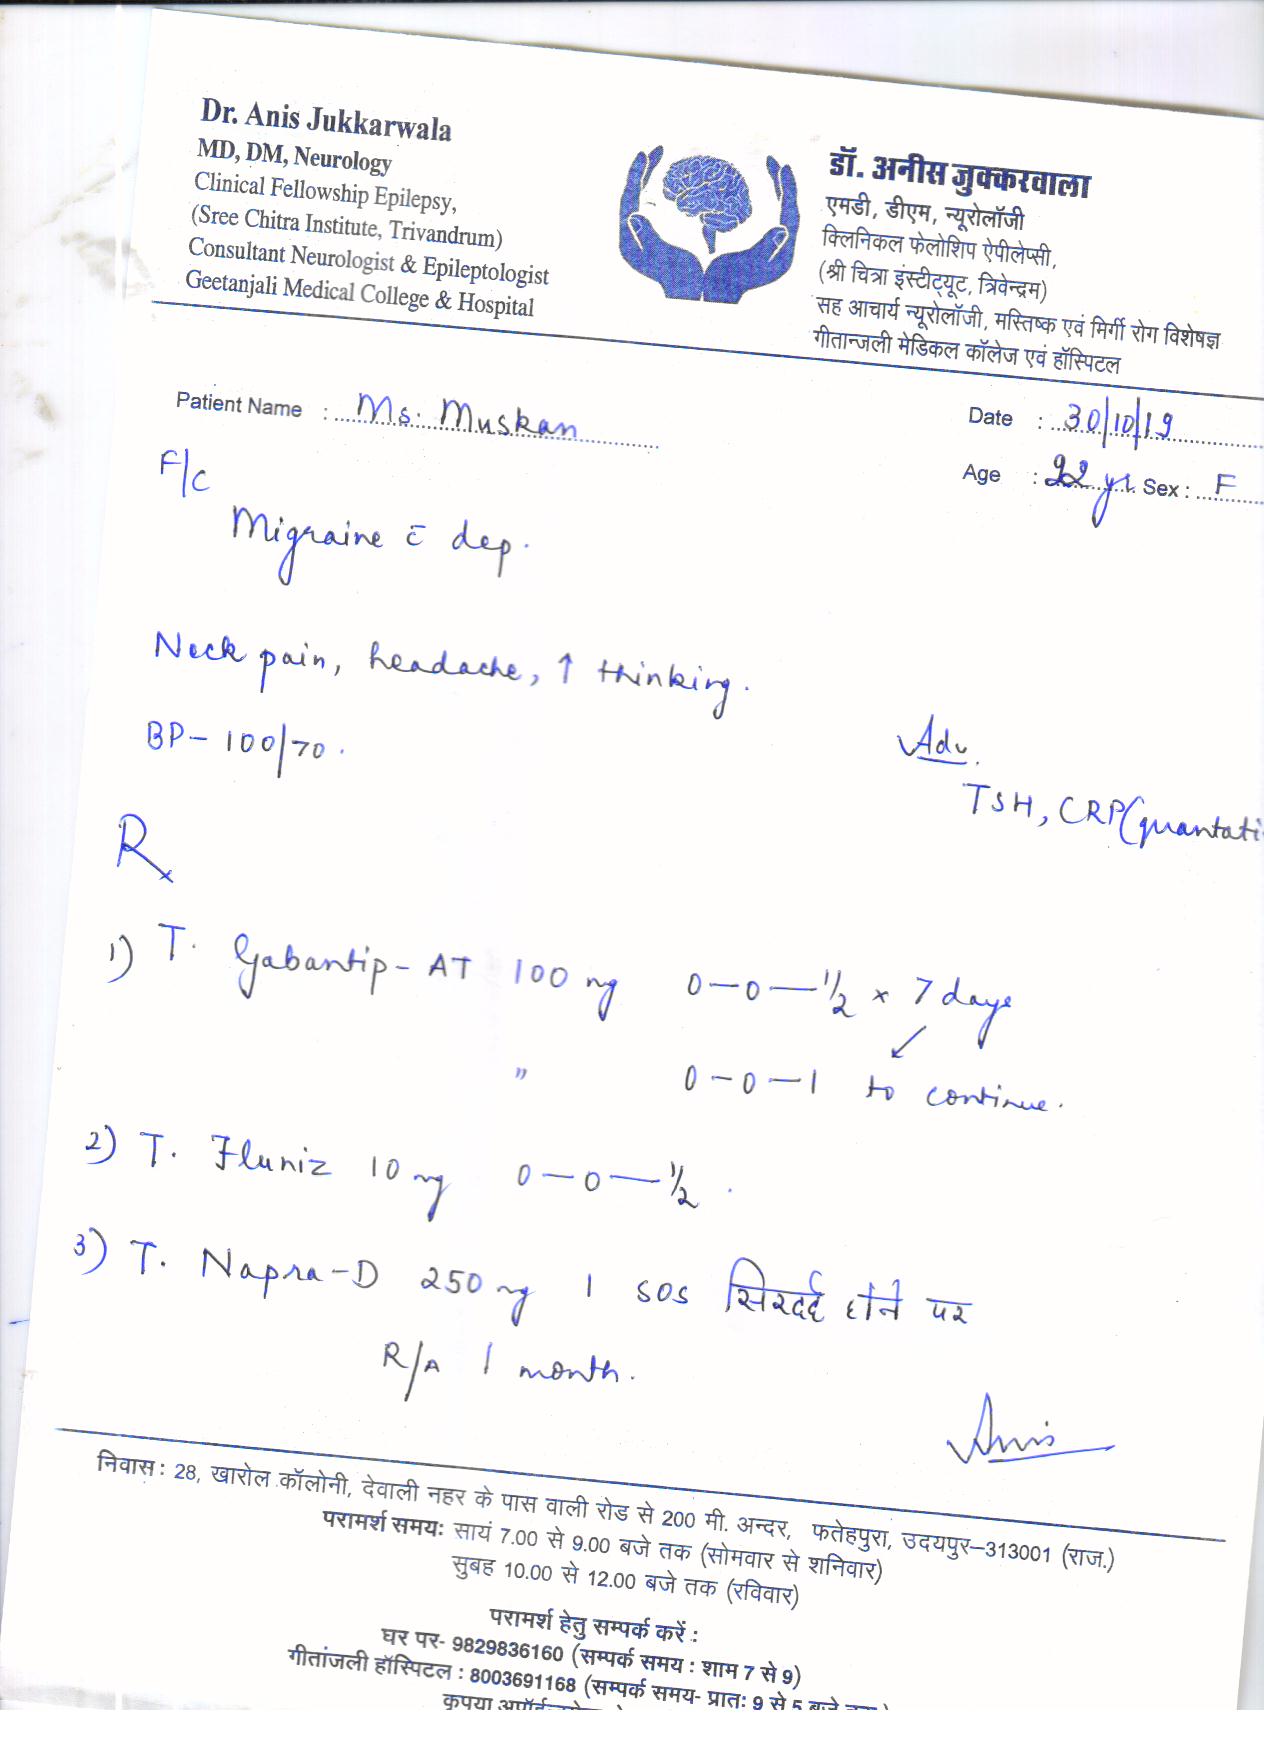 Dr. Anis Jukkarwala
MD, DM, Neurology
Clinical Fellowship Epilepsy,
(Sree Chitra Institute, Trivandrum)
Consultant Neurologist & Epileptologist
Geetanjali Medical College & Hospital
डॉ. अनीस जुक्करवाला
एमडी, डीएम, न्यूरोलॉजी
क्लिनिकल फेलोशिप ऐपीलेप्सी,
(श्री चित्रा इंस्टीट्यूट, त्रिवेन्द्रम)
सह आचार्य न्यूरोलॉजी, मस्तिष्क एवं मिर्गी रोग विशेषज्ञ
गीतान्जली मेडिकल कॉलेज एवं हॉस्पिटल
Patient Name : Ms. Muskan
Date : 30/10/19
Age : 22 yr. Sex : F
F/C
Migraine c̄ dep.
Neck pain, headache, ↑ thinking.
BP- 100/70.
Adv.
TSH, CRP (quantati
Rx
1) T. Gabantip-AT 100 mg 0-0-1/2 x 7 days
" 0-0-1 to continue.
2) T. Fluniz 10 mg 0-0-1/2.
3) T. Napra-D 250 mg 1 sos सिरदर्द होने पर
R/A 1 month.
Anis
निवास: 28, खारोल कॉलोनी, देवाली नहर के पास वाली रोड से 200 मी. अन्दर, फतेहपुरा, उदयपुर-313001 (राज.)
परामर्श समय: सायं 7.00 से 9.00 बजे तक (सोमवार से शनिवार)
सुबह 10.00 से 12.00 बजे तक (रविवार)
परामर्श हेतु सम्पर्क करें :
घर पर- 9829836160 (सम्पर्क समय : शाम 7 से 9)
गीतांजली हॉस्पिटल : 8003691168 (सम्पर्क समय- प्रातः 9 से 5 बजे तक)
कृपया